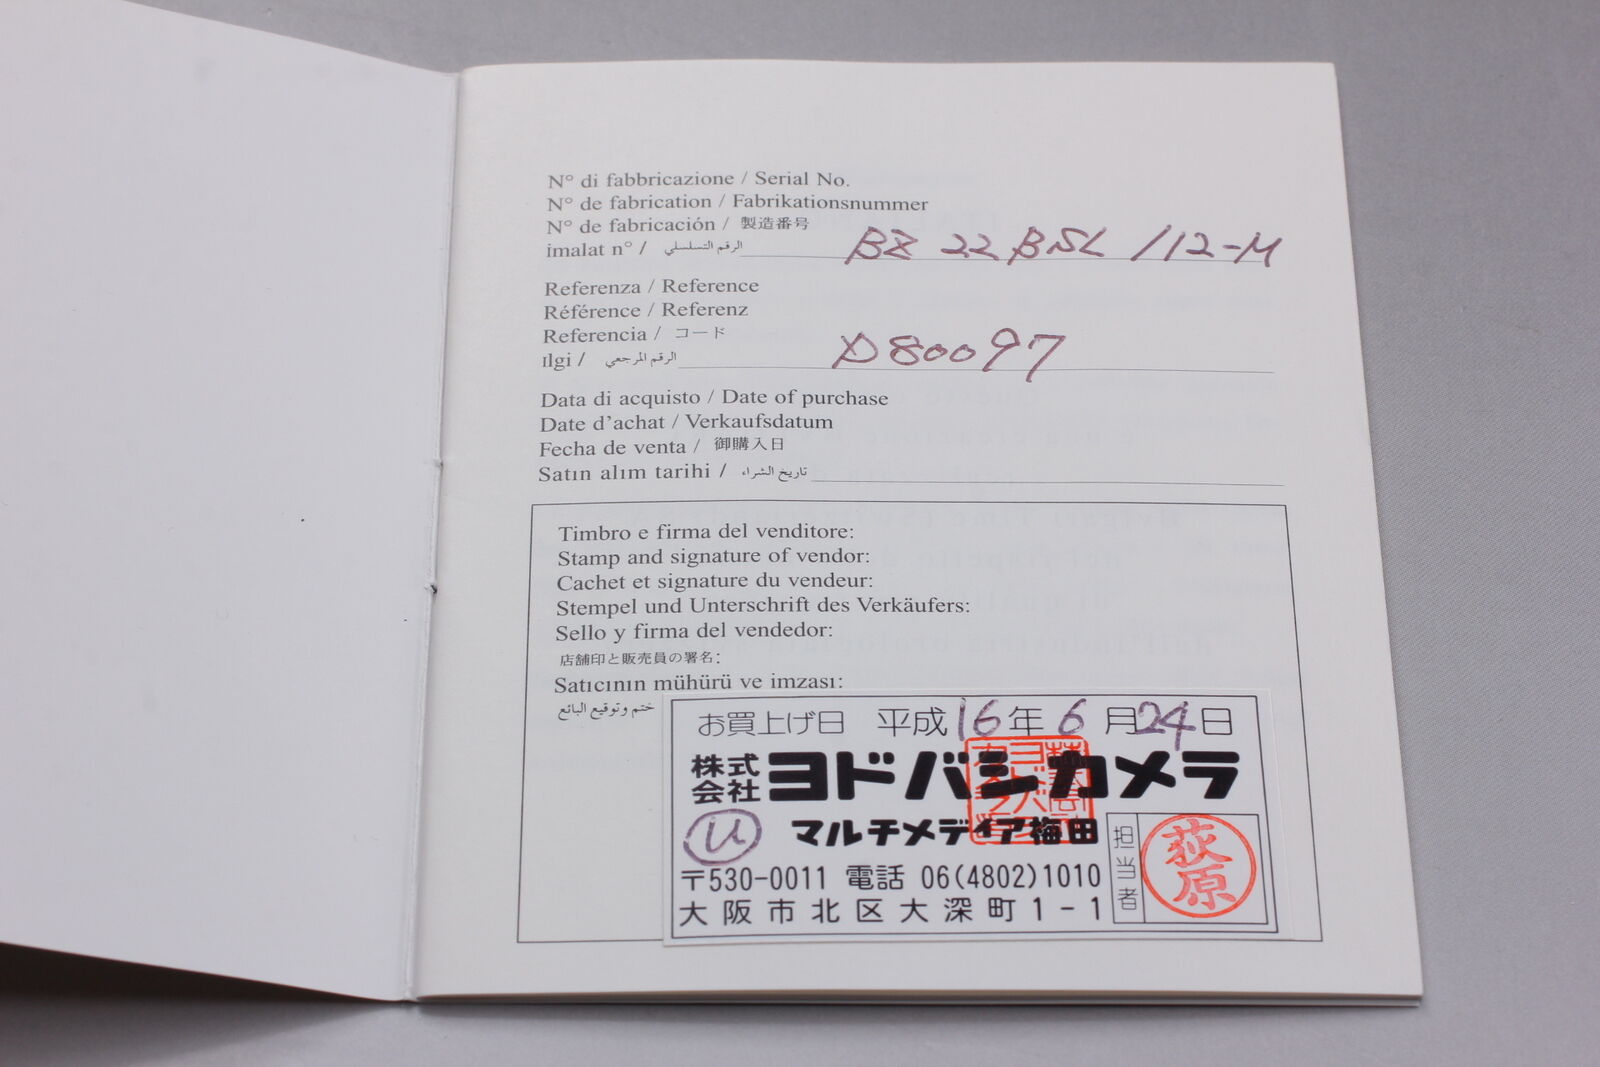 N° di fabbricazione / Serial No.
N° de fabrication / Fabrikationsnummer
N° de fabricación / 製造番号
imalat n° / الرقم التسلسلي BZ 22 BSL /12-M
Referenza / Reference
Référence / Referenz
Referencia / コード
Ilgi / الرقم المرجعي D80097
Data di acquisto / Date of purchase
Date d'achat / Verkaufsdatum
Fecha de venta / 御購入日
Satın alım tarihi / تاريخ الشراء
Timbro e firma del venditore:
Stamp and signature of vendor:
Cachet et signature du vendeur:
Stempel und Unterschrift des Verkäufers:
Sello y firma del vendedor:
店舗印と販売員の署名:
Satıcının mühürü ve imzası:
ختم وتوقيع البائع
お買上げ日 平成16年6月24日
株式会社 ヨドバシカメラ
マルチメディア梅田
担当者
荻原
〒530-0011 電話 06(4802)1010
大阪市北区大深町1-1